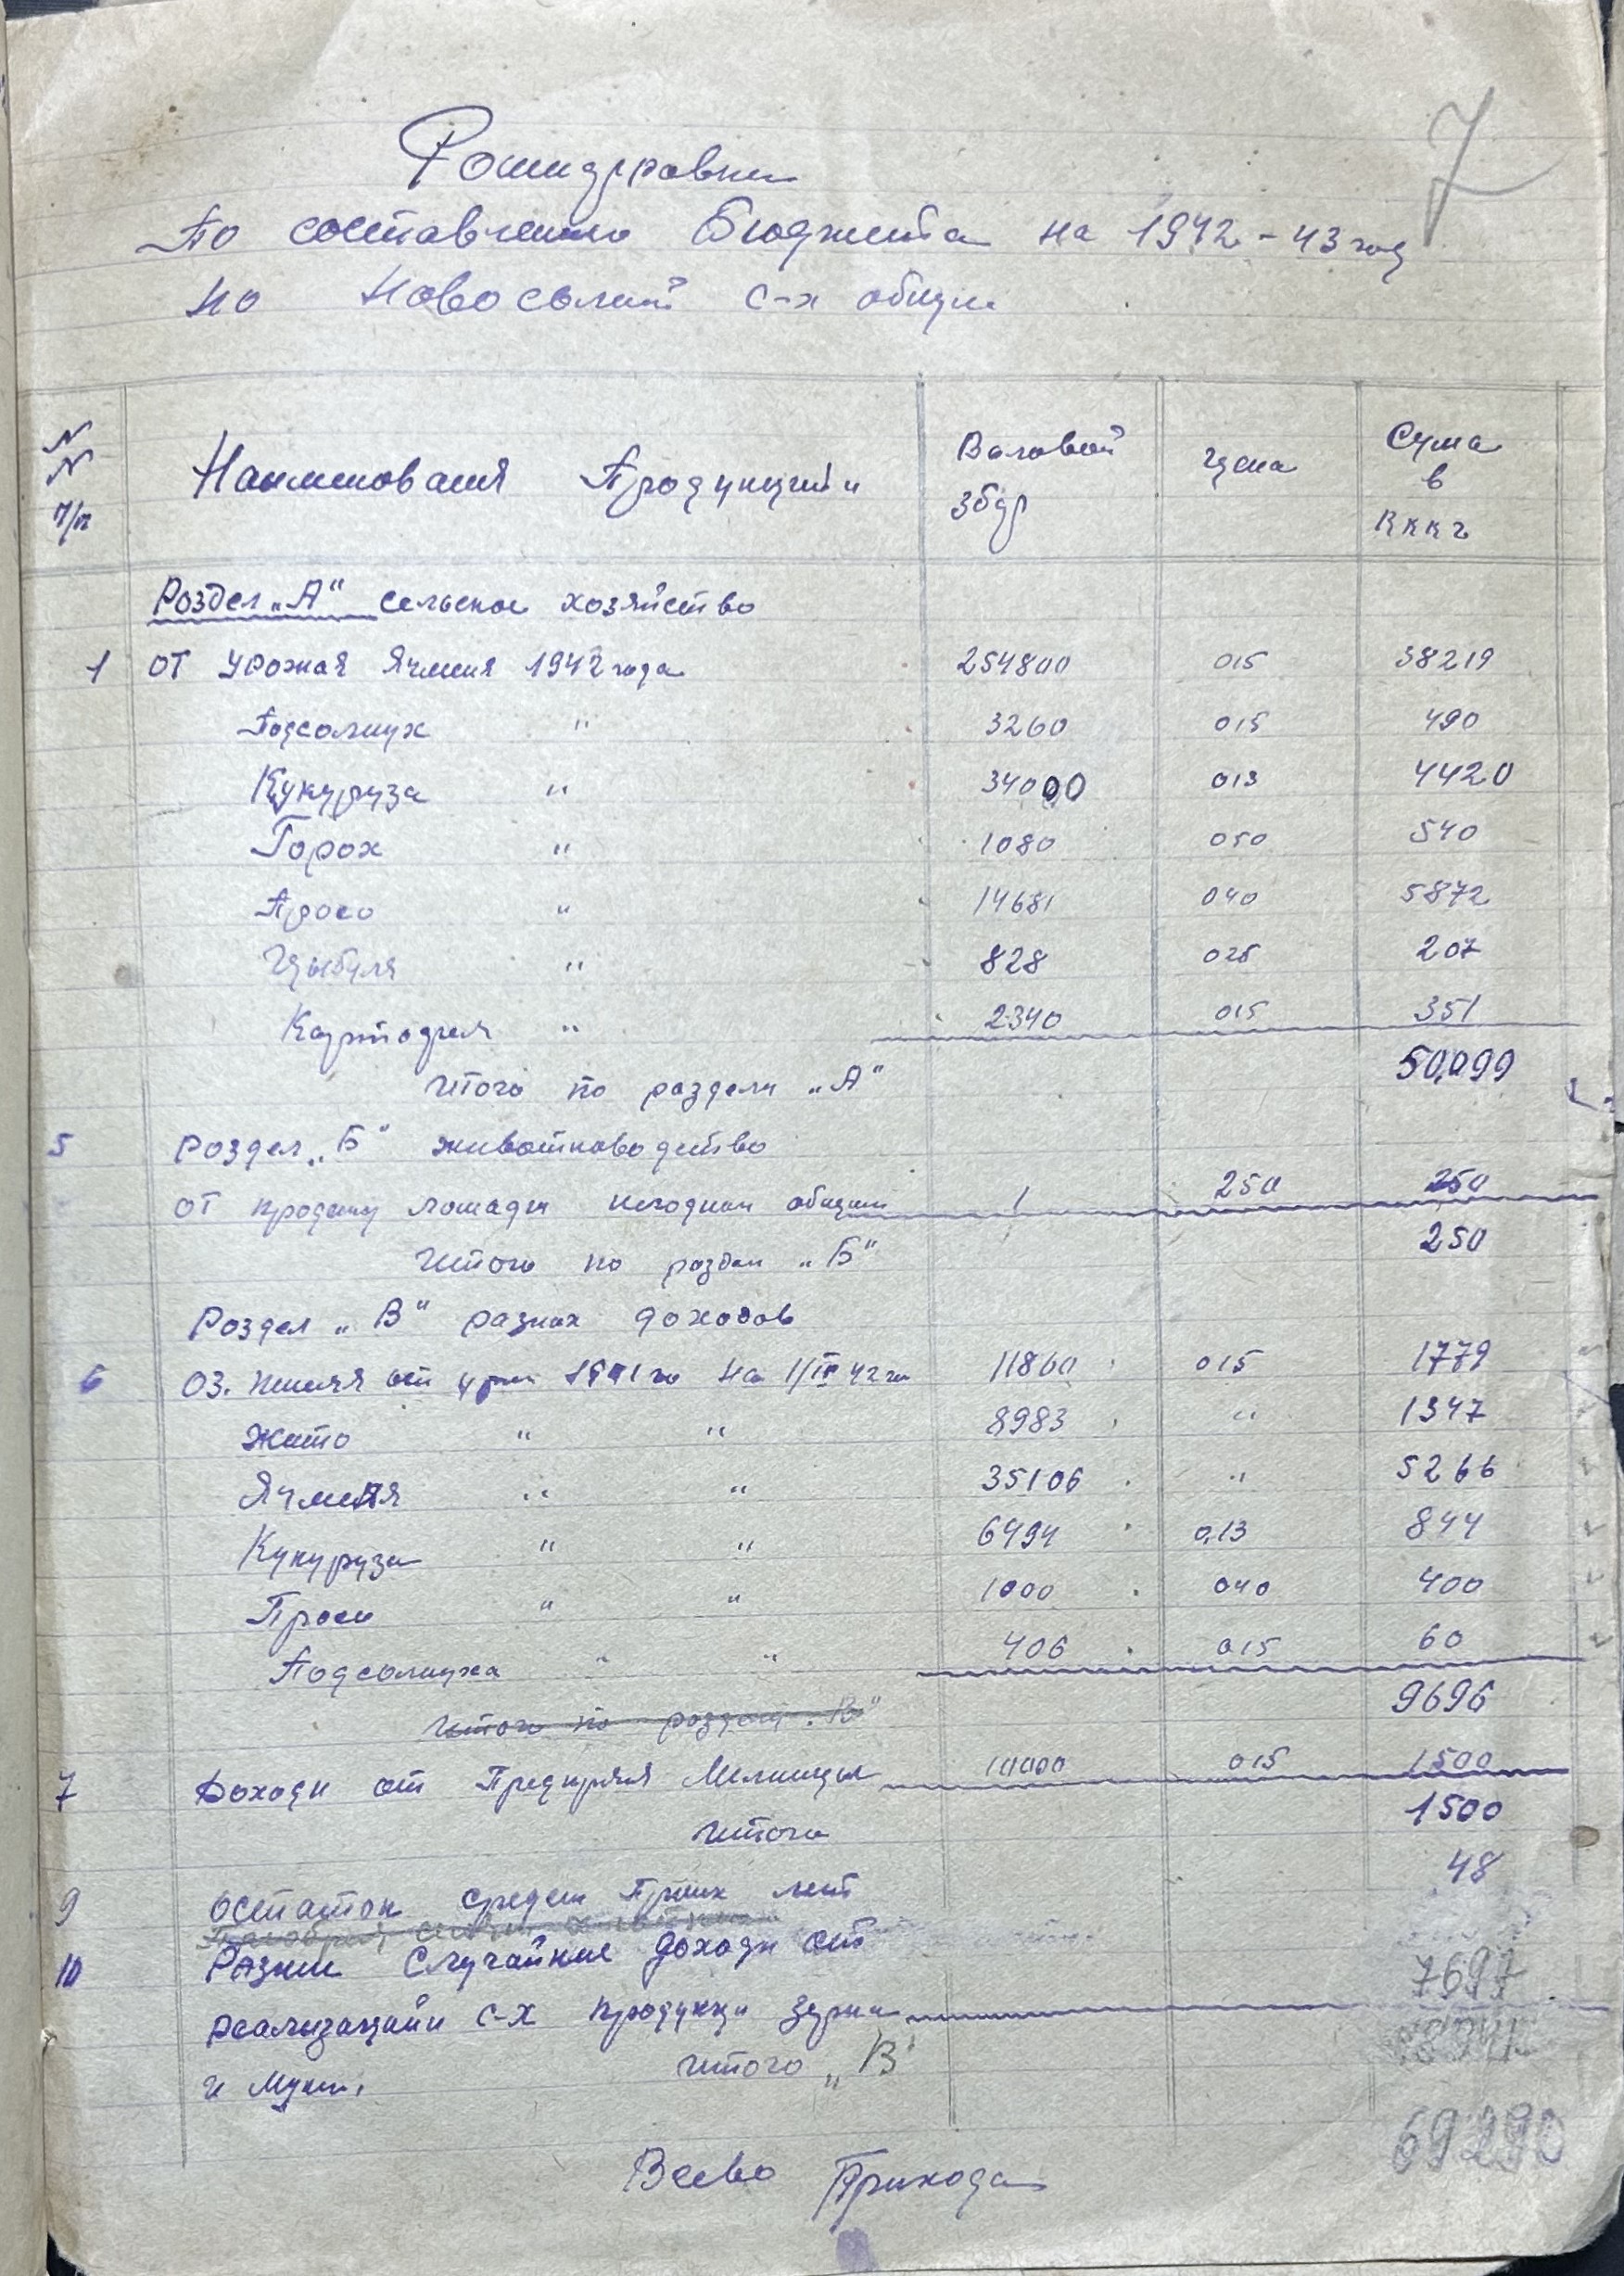 7
Рошидровки
По составлению Бюджета на 1942-43 год
по Новосели с-х общи
N N п/п | Наиминования Продукций | Валовой збур | цена | Сума в RККЧ
Роздел „А“ сельское хозяйство
1 | от Урожая Ячменя 1942 года | 254800 | 015 | 38219
Подсолнух " | 3260 | 015 | 490
Кукуруза " | 34000 | 013 | 4420
Горох " | 1080 | 050 | 540
Просо " | 14681 | 040 | 5872
Цыбуля " | 828 | 025 | 207
Картофля " | 2340 | 015 | 351
Итого по раздели „А“ | 50,099
5 | Роздел „Б“ животноводство
от продажу лошади негодной общин | 1 | 250 | 250
Итого по раздел „Б“ | 250
Роздел „В“ разних доходов
6 | Оз. пшения от уро 1941 го на 1/IV 42 го | 11860 | 015 | 1779
Жито " " | 8983 | " | 1347
Ячменя " " | 35106 | " | 5266
Кукуруза " " | 6494 | 0,13 | 844
Просо " " | 1000 | 040 | 400
Подсолнуха " " | 406 | 015 | 60
Итого по раздели „В“ | 9696
7 | Доходи от Предприя Мелницы | 10000 | 015 | 1500
Итого | 1500
9 | Остаток средст Прших лет | 48
10 | Разние Случайние доходи от | 7697
реализацийи с-х продукци зерна
и муки. Итого „В“
Всево Прихода | 69290